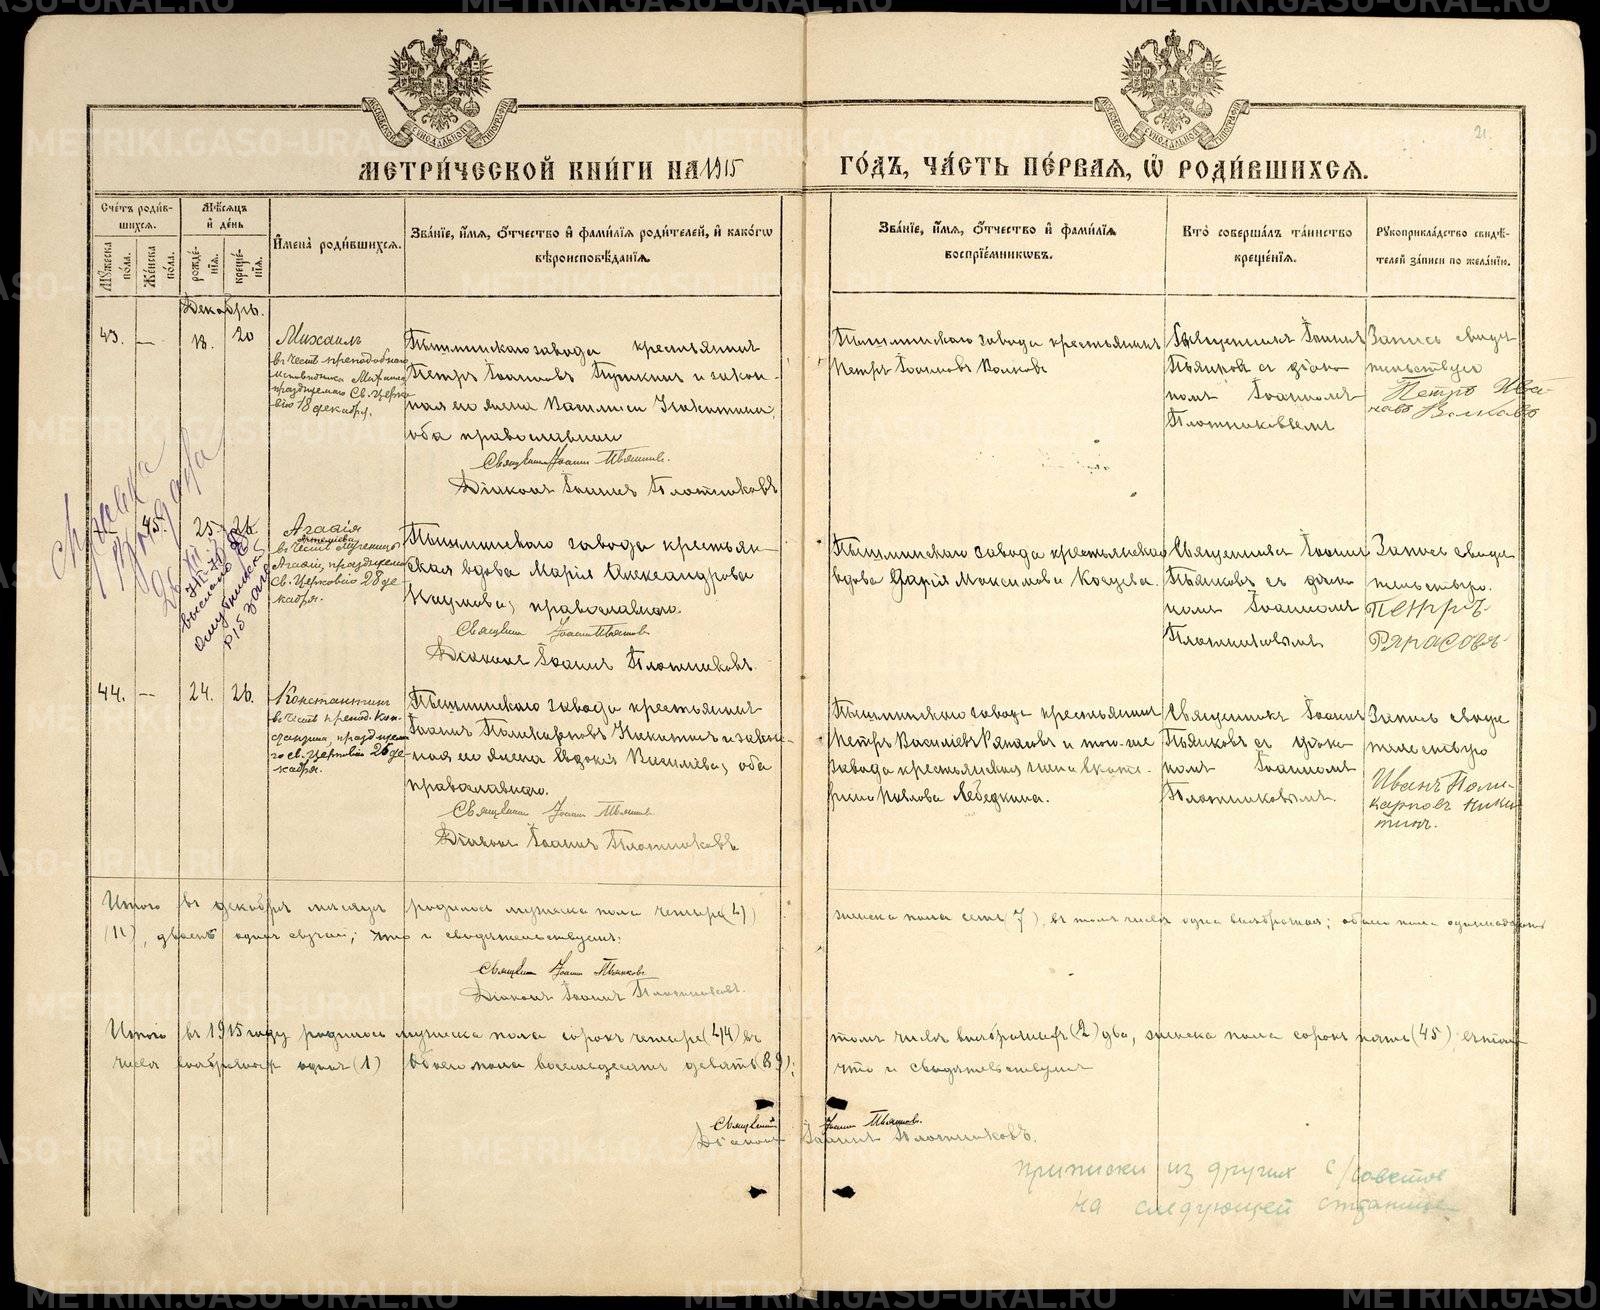 МЕТРИ́ЧЕСКОЙ КНИ́ГИ НА 1915
ГО́ДЪ, ЧА́СТЬ ПЕ́РВАЯ, Ѡ҆ РОДИ́ВШИХСЯ.
21.
Сче́тъ роди́в-
шихся.
Му́жеска по́ла.
Же́нска по́ла.
Мѣ́сяцъ
и҆ де́нь
рожде́-
нїя.
креще́-
нїя.
И҆мена̀ роди́вшихся.
Зва́нїе, и҆́мя, ѻ҆́тчество и҆ фами́лїя роди́телей, и҆ како́гѡ
вѣроисповѣ́данїя.
Зва́нїе, и҆́мя, ѻ҆́тчество и҆ фами́лїя
воспрїе́мникѡвъ.
Кто̀ соверша́лъ та́инство
креще́нїя.
Рукоприкла́дство свидѣ́-
телей за́писи по жела́нїю.
Декабрь.
43.
—
18.
20
Михаилъ
въ честь преподобнаго
исповѣдника Михаила
празднуемаго Св. Церко-
вію 18 декабря.
Пышминскаго завода крестьянинъ
Петръ Іоанновъ Пушкинъ и закон-
ная его жена Василиса Никитина,
оба православные
Священникъ Іоаннъ Пьянковъ.
Діаконъ Іоаннъ Плотниковъ
Пышминскаго завода крестьянинъ
Петръ Іоанновъ Волковъ
Священникъ Іоаннъ
Пьянковъ съ діако-
номъ Іоанномъ
Плотниковымъ
Запись свидѣ-
тельствую
Петръ Ива-
новъ Волковъ
Справка
26/XII
выслано
45.
25.
26.
Агафія
въ честь мученицы
Агафіи, празднуемой
Св. Церковію 28 де-
кабря.
Пышминскаго завода крестьян-
ская вдова Марія Александрова
Наумова, православнаго.
Священникъ Іоаннъ Пьянковъ
Діаконъ Іоаннъ Плотниковъ
Пышминскаго завода крестьянская
вдова Дарія Максимова
Священникъ Іоаннъ
Пьянковъ съ діако-
номъ Іоанномъ
Плотниковымъ
Запись свидѣ-
тельствую.
Петръ
Ряпасовъ
44.
—
24.
26.
Константинъ
въ честь препод. Кон-
стантина, празднуема-
го св. церковію 26 де-
кабря.
Пышминскаго завода крестьянинъ
Іоаннъ Поликарповъ Никитинъ и закон-
ная его жена Евдокія Васильева, оба
православнаго.
Священникъ Іоаннъ Пьянковъ
Діаконъ Іоаннъ Плотниковъ
Пышминскаго завода крестьянинъ
Петръ Васильевъ Ряпасовъ и того-же
завода крестьянская жена Екате-
рина Павлова Лебедкина.
Священникъ Іоаннъ
Пьянковъ съ діако-
номъ Іоанномъ
Плотниковымъ.
Запись свидѣ-
тельствую
Иванъ Поли-
карповъ Ники-
тинъ.
Итого въ декабрѣ мѣсяцѣ родилось мужеска пола четыре (4)
женска пола семь (7), въ томъ числѣ одна внѣбрачная; обоего пола одиннадцать
(11), двоенъ одинъ случай; что и свидѣтельствуемъ:
Священникъ Іоаннъ Пьянковъ
Діаконъ Іоаннъ Плотниковъ.
Итого въ 1915 году родилось мужеска пола сорокъ четыре (44) въ
томъ числѣ внѣбрачныхъ (2) два, женска пола сорокъ пять (45) въ томъ
числѣ внѣбрачныхъ одна (1) обоего пола восемьдесятъ девять (89);
что и свидѣтельствуемъ
Священникъ Іоаннъ Пьянковъ.
Діаконъ Іоаннъ Плотниковъ.
приписки из других с/советов
на следующей странице
METRIKI.GASO-URAL.RU